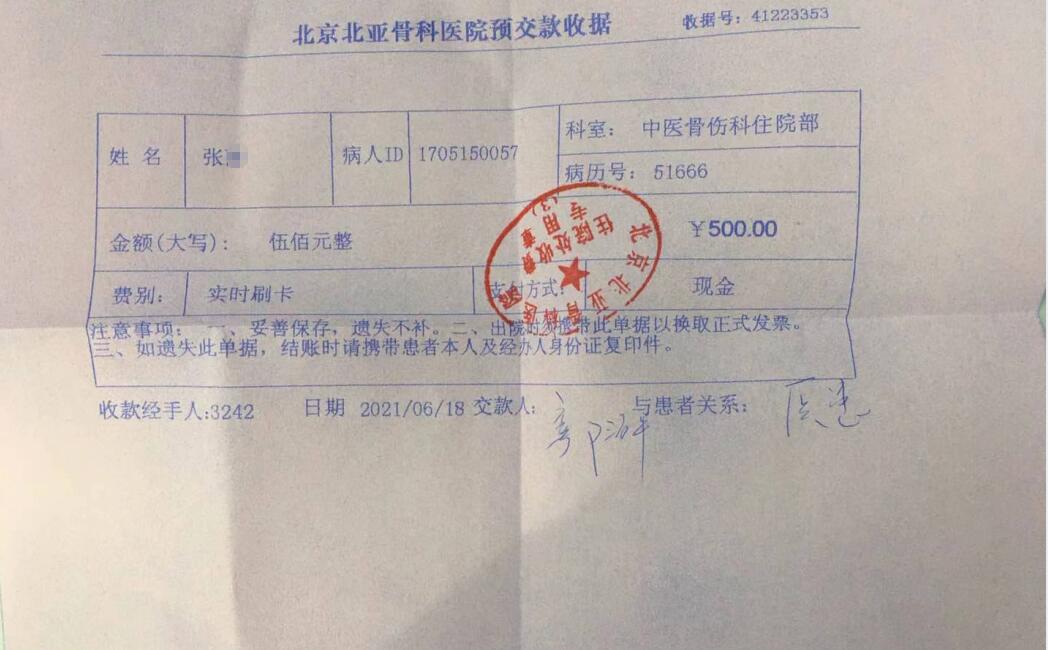 北京北亚骨科医院预交款收据
收据号：41223353
姓 名 张
病人ID 1705150057
科室： 中医骨伤科住院部
病历号：51666
金额(大写)： 伍佰元整 ￥500.00
费别： 实时刷卡 支付方式： 现金
注意事项：一、妥善保存，遗失不补。二、出院时务携带此单据以换取正式发票。
三、如遗失此单据，结账时请携带患者本人及经办人身份证复印件。
收款经手人:3242 日期 2021/06/18 交款人: 与患者关系： 医患
北京北亚骨科医院
住院处收费
专用章
(3)